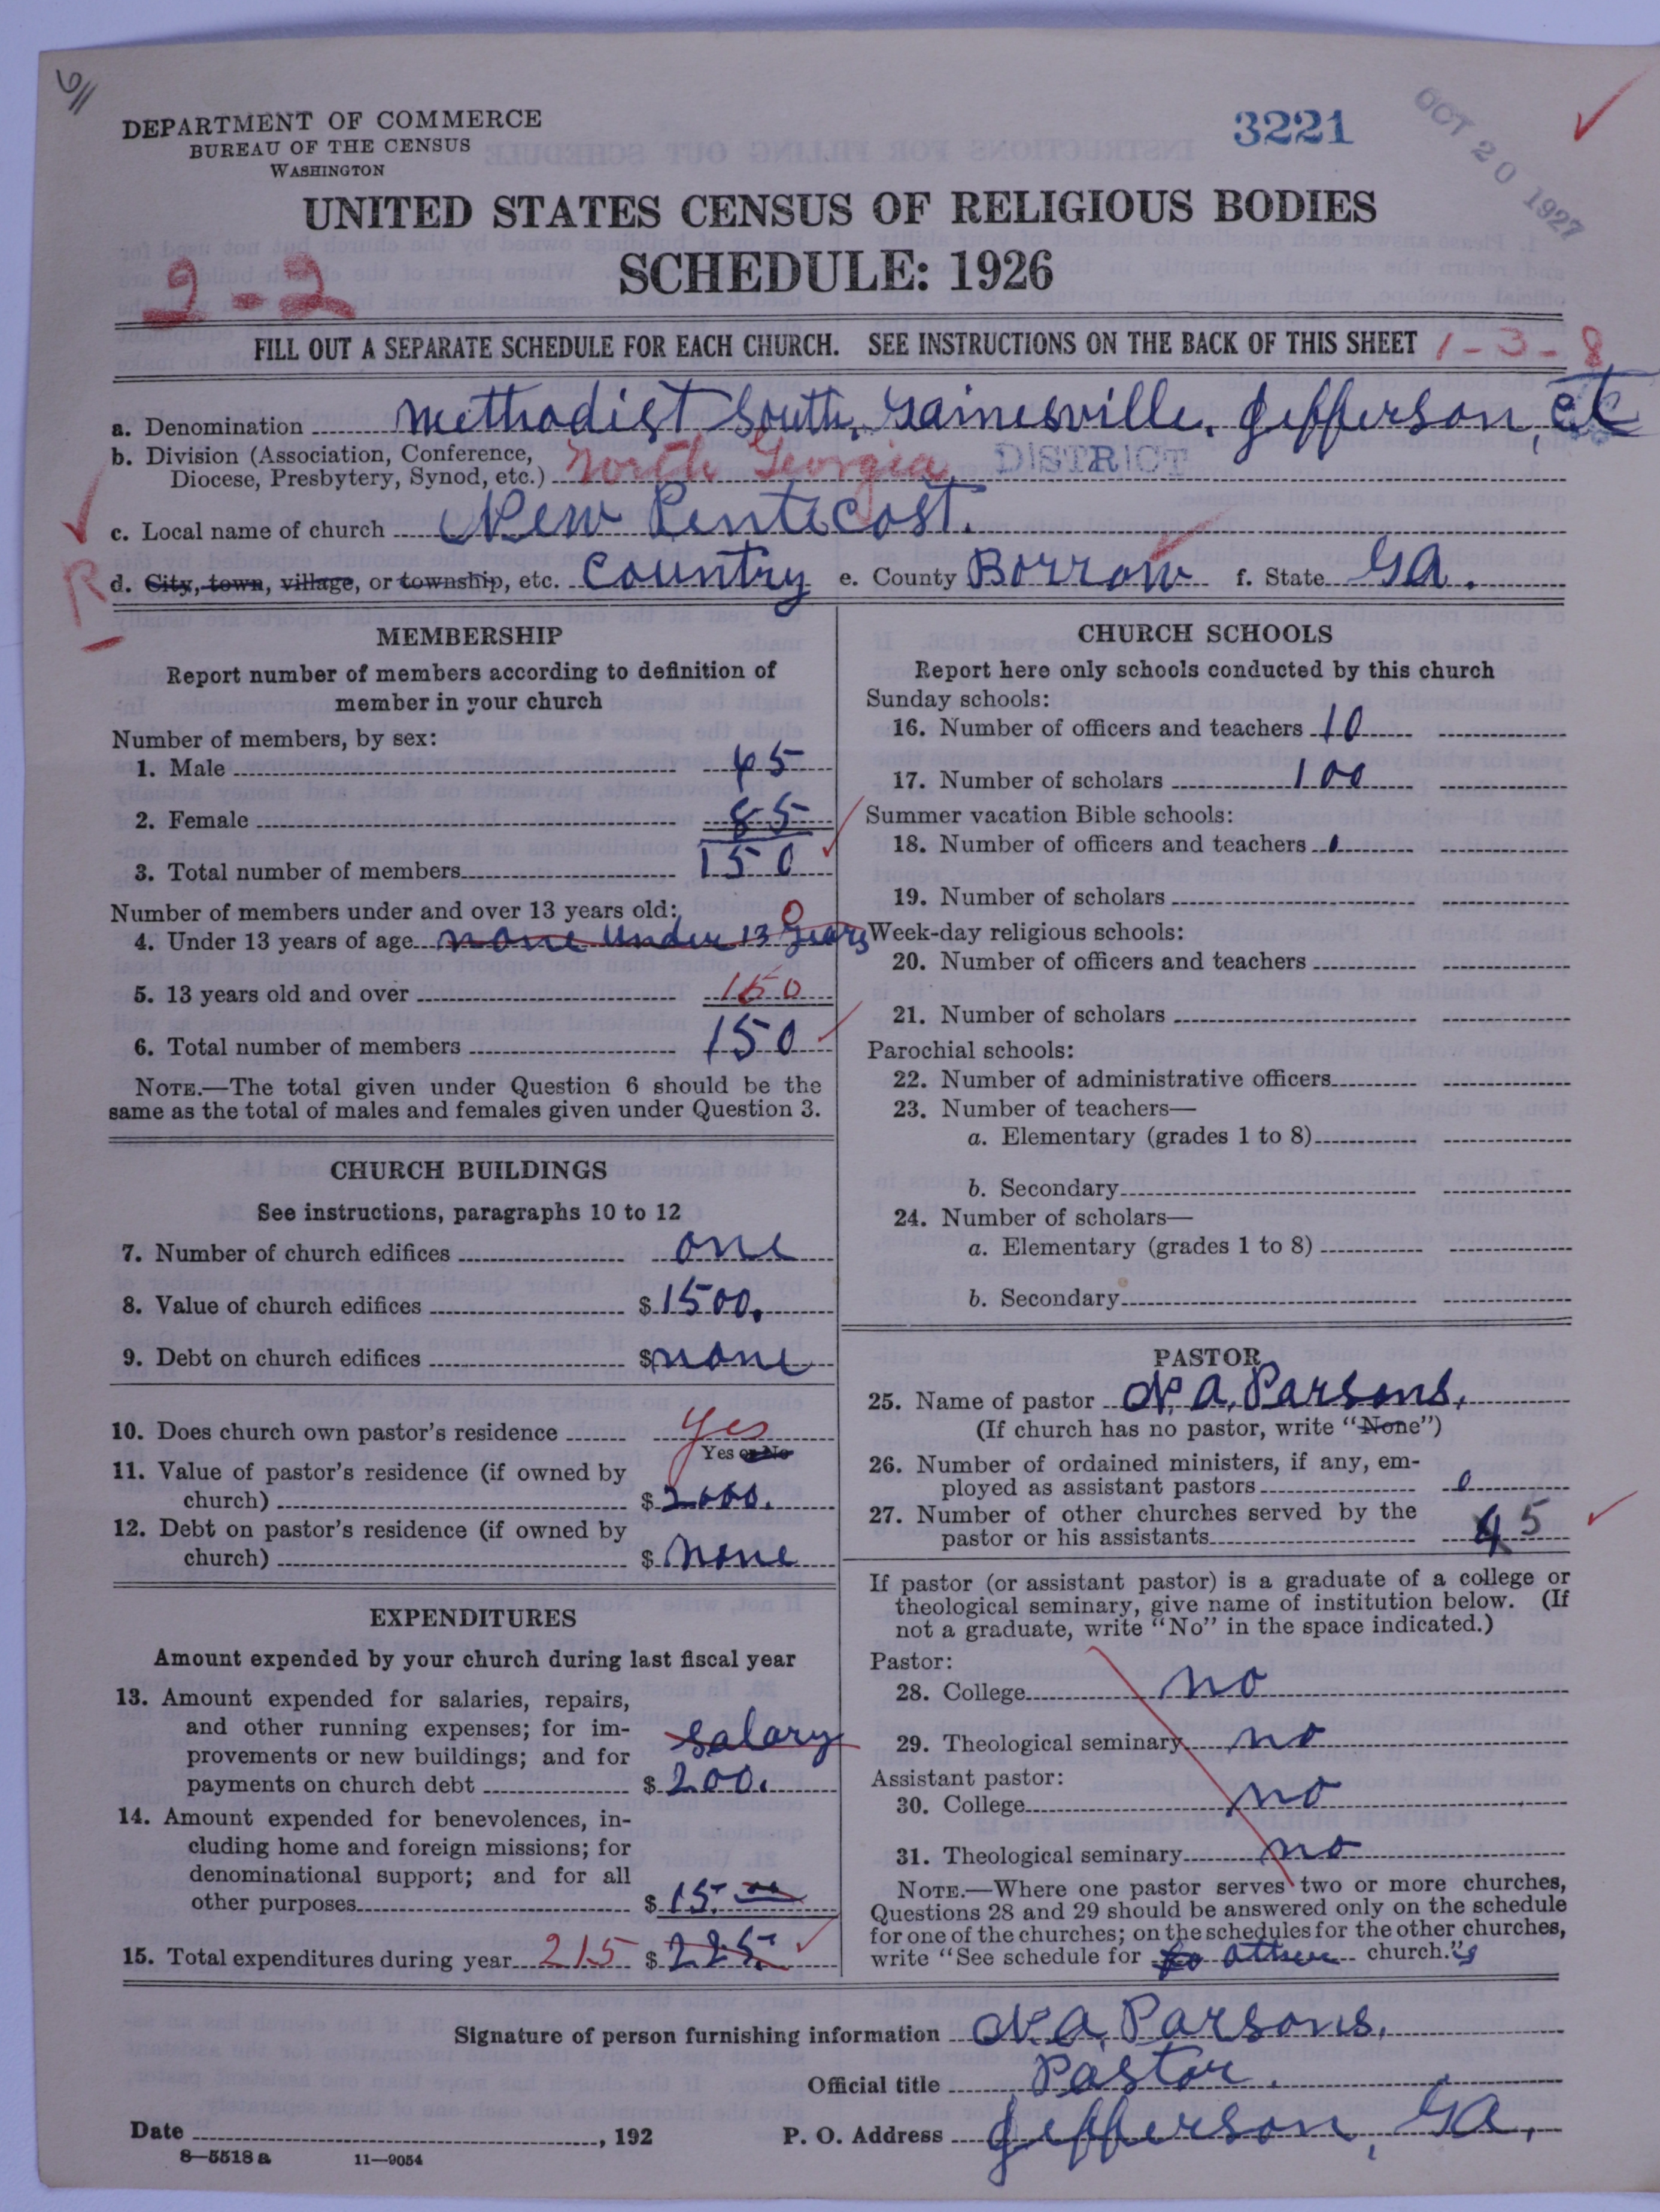 6//
DEPARTMENT OF COMMERCE
BUREAU OF THE CENSUS
WASHINGTON
3221
OCT 20 1927
UNITED STATES CENSUS OF RELIGIOUS BODIES
SCHEDULE: 1926
2-2
FILL OUT A SEPARATE SCHEDULE FOR EACH CHURCH. SEE INSTRUCTIONS ON THE BACK OF THIS SHEET 1-3-8
a. Denomination Methodist South, Gainesville, Jefferson, ct
b. Division (Association, Conference,
Diocese, Presbytery, Synod, etc.) North Georgia DISTRICT
c. Local name of church New Pentecost.
R
d. City, town, village, or township, etc. Country e. County Borrow f. State Ga.
MEMBERSHIP
Report number of members according to definition of
member in your church
Number of members, by sex:
1. Male 65
2. Female 85
3. Total number of members 150
Number of members under and over 13 years old: 0
4. Under 13 years of age none under 13 years
5. 13 years old and over 150
6. Total number of members 150
NOTE.—The total given under Question 6 should be the
same as the total of males and females given under Question 3.
CHURCH BUILDINGS
See instructions, paragraphs 10 to 12
7. Number of church edifices one
8. Value of church edifices $ 1500.
9. Debt on church edifices $ none
10. Does church own pastor's residence yes
Yes or No
11. Value of pastor's residence (if owned by
church) $ 2000.
12. Debt on pastor's residence (if owned by
church) $ none
EXPENDITURES
Amount expended by your church during last fiscal year
13. Amount expended for salaries, repairs,
and other running expenses; for im-
provements or new buildings; and for salary
payments on church debt $ 200.
14. Amount expended for benevolences, in-
cluding home and foreign missions; for
denominational support; and for all
other purposes $ 15.00
15. Total expenditures during year 215 $ 225.
CHURCH SCHOOLS
Report here only schools conducted by this church
Sunday schools:
16. Number of officers and teachers 10
17. Number of scholars 100
Summer vacation Bible schools:
18. Number of officers and teachers
19. Number of scholars
Week-day religious schools:
20. Number of officers and teachers
21. Number of scholars
Parochial schools:
22. Number of administrative officers
23. Number of teachers—
a. Elementary (grades 1 to 8)
b. Secondary
24. Number of scholars—
a. Elementary (grades 1 to 8)
b. Secondary
PASTOR
25. Name of pastor N. A. Parsons.
(If church has no pastor, write "None")
26. Number of ordained ministers, if any, em-
ployed as assistant pastors 0
27. Number of other churches served by the
pastor or his assistants 4 5
If pastor (or assistant pastor) is a graduate of a college or
theological seminary, give name of institution below. (If
not a graduate, write "No" in the space indicated.)
Pastor:
28. College no
29. Theological seminary no
Assistant pastor:
30. College no
31. Theological seminary no
NOTE.—Where one pastor serves two or more churches,
Questions 28 and 29 should be answered only on the schedule
for one of the churches; on the schedules for the other churches,
write "See schedule for other church."s
Signature of person furnishing information N. A. Parsons.
Official title Pastor.
Date , 192 P. O. Address Jefferson, Ga.
8—5518 a 11—9054